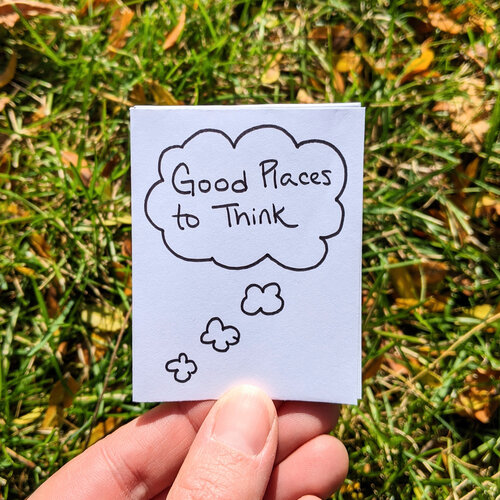 Good Places
to Think